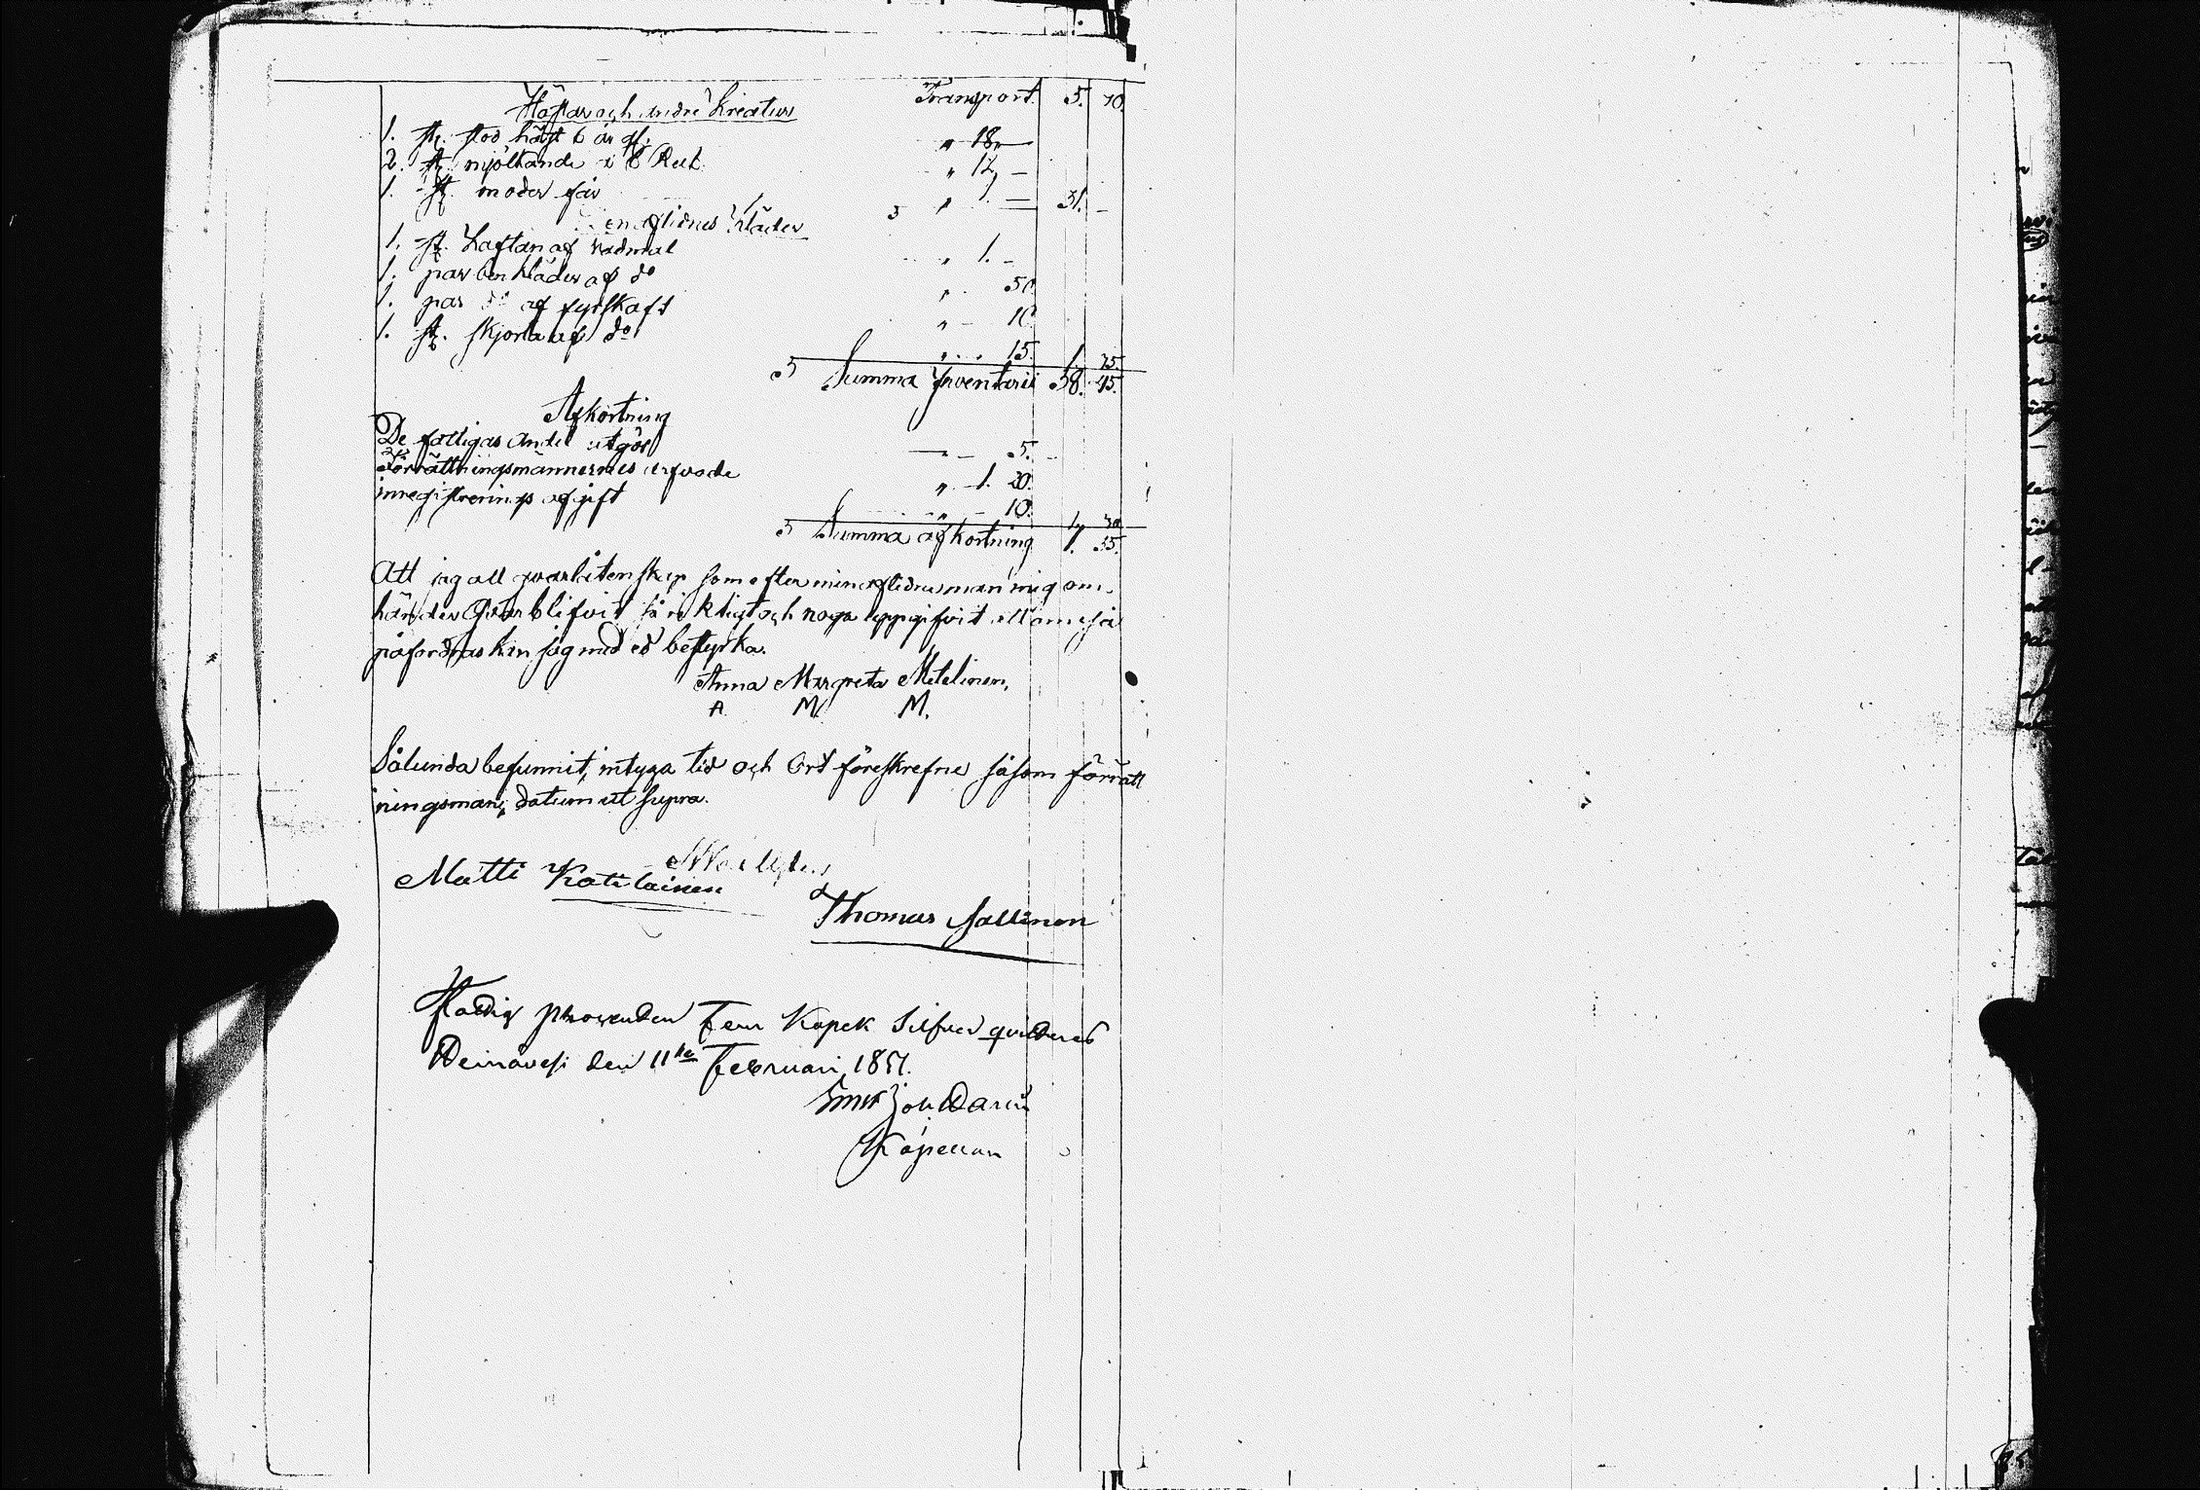 Transport. 5. 70.
Hästar och andre Kreatur
1. st. stod häst 6 år gl. " 18, —
2. st. mjölkande à 6 Rub. " 12, —
1. st. moder får " 1. — 31. —
aflidnes Kläder
1. st. Kaftan af vadmal " 1. —
1. par benkläder af do " 50.
1. par do af fyrskaft " 10.
1. st. skjorta af do " 15. 1. 75.
Summa Inventarii 38. 45.
Afkortning
De fattigas andel utgör — 5.
Förrättningsmännernes arfvode " 1. 20.
inregistrerings afgift " 10.
Summa afkortning 1. 35.
Att jag all qvarlåtenskap som efter min aflidne man mig om
händer qvar blifvit så riktigt och noga uppgifvit att om så
påfordras kan jag med ed bestyrka.
Anna Margreta
A. M. M.
Sålunda befunnit, intyga tid och Ort föreskrefne såsom förrätt
ningsman, datum ut supra.
Matti Katilainen
Thomas Sallinen
Fattig procenten Fem Kopek Silfver qvitteras
den 11te Februari 1851.
Kapellan